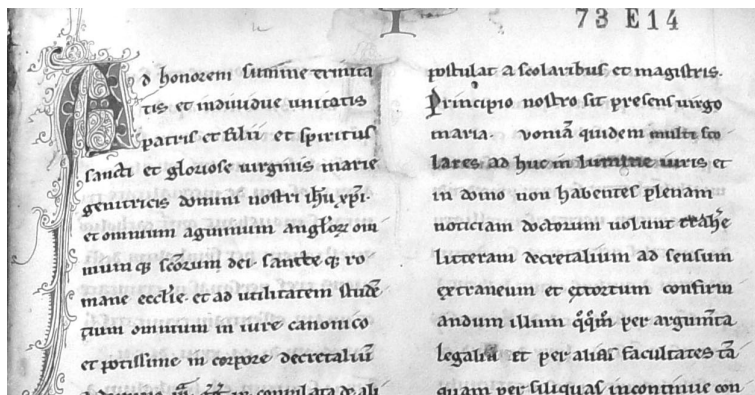 73 E 14
I
Ad honorem summe trinita
tis et indiuidue unitatis
patris et filii et spiritus
sancti et gloriose uirginis marie
genitricis domini nostri ihũ xp̃i.
et omnium agminum angl̃oꝝ om
nium qꝫ sc̃orum dei. sancte qꝫ ro
mane ecclie. et ad utilitatem studẽ
tium omnium in iure canonico
et potissime in corpore decretaliũ
in compilata de ali
postulat a scolaribus et magistris.
Principio nostro sit presens uirgo
maria. voniã quidem multi sco
lares ad huc in lumine iuris et
in domo non habentes plenam
noticiam doctorum uolunt trahe᷒
litteram decretalium ad sensum
extraneum et extortum confirm
andum illum q̃q̃m per argum̃ta
legalia et per alias facultates tã
quam per siliquas incontinue con